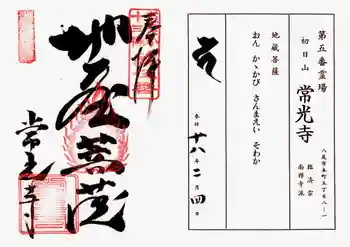 奉拝
地蔵菩薩
常光寺
第五番霊場
初日山 常光寺
臨済宗
南禅寺派
八尾市本町五丁目八ー一
地蔵菩薩
おん かゝかび さんまえい そわか
奉拝 十八年二月四日